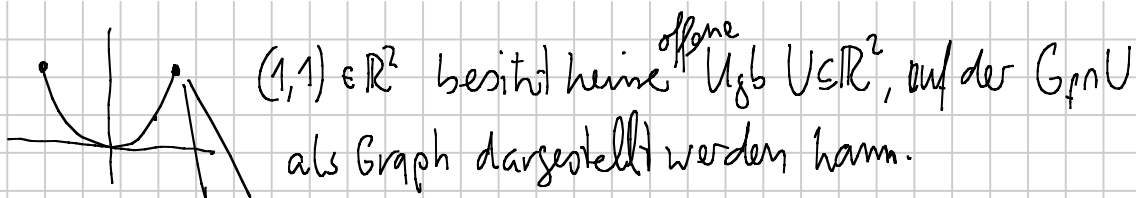 (1,1) ∈ ℝ² besitzt keine offene Ugb U⊆ℝ², auf der G_f∩U
als Graph dargestellt werden kann.